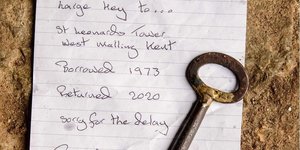 large key to...
St Leonards Tower
West Malling Kent
Borrowed 1973
Returned 2020
sorry for the delay